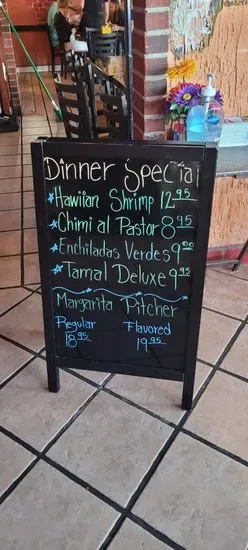 Dinner Special
☆Hawiian Shrimp 12.95
☆Chimi al Pastor 8.95
☆Enchiladas Verdes 9.00
☆Tamal Deluxe 9.95
Margarita Pitcher
Regular Flavored
18.95 19.95